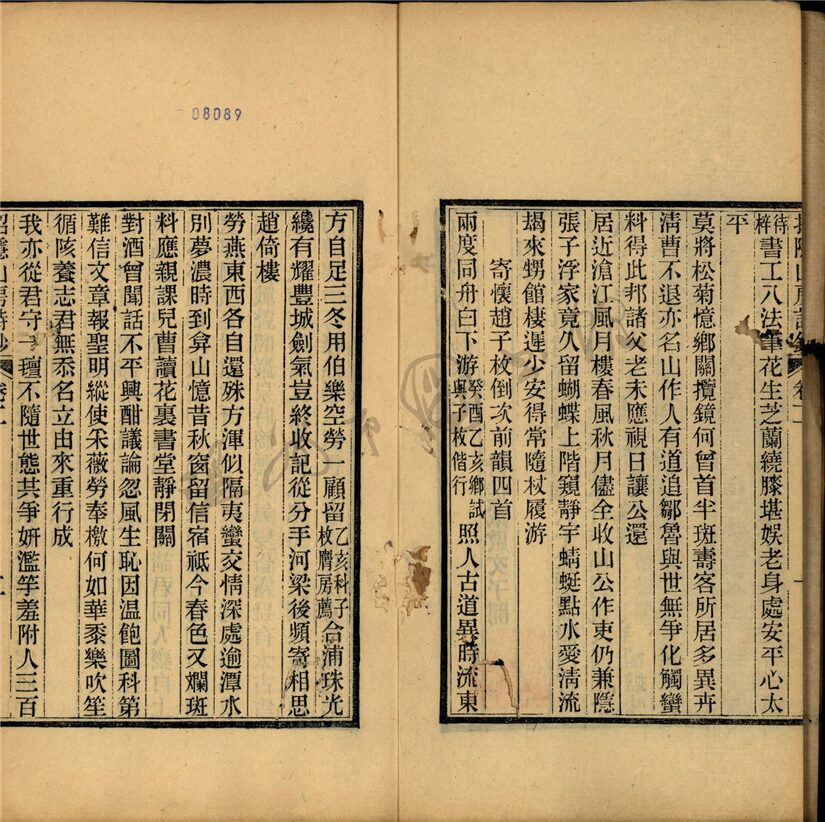 08089
招隱山房詩鈔 卷二 一
待梓書工八法筆花生芝蘭繞膝堪娛老身處安平心太
平
莫將松菊憶鄉關攬鏡何曾首半斑壽客所居多異卉
淸曹不退亦名山作人有道追鄒魯與世無爭化觸蠻
料得此邦諸父老未應視日讓公還
居近滄江風月樓春風秋月儘全收山公作吏仍兼隱
張子浮家竟久留蝴蝶上階窺靜宇蜻蜓點水愛淸流
朅來甥館棲遲少安得常隨杖履游
寄懷趙子枚倒次前韻四首
兩度同舟白下游癸酉乙亥鄉試與子枚偕行照人古道異時流東
方自足三冬用伯樂空勞一顧留乙亥科子枚膺房薦合浦珠光
纔有耀豐城劍氣豈終收記從分手河梁後頻寄相思
趙倚樓
勞燕東西各自還殊方渾似隔夷蠻交情深處逾潭水
別夢濃時到弇山憶昔秋窗留信宿祗今春色又斕斑
料應親課兒曹讀花裏書堂靜閉關
對酒曾聞話不平興酣議論忽風生恥因温飽圖科第
難信文章報聖明縱使采薇勞奉檄何如華黍樂吹笙
循陔養志君無忝名立由來重行成
我亦從君守一壇不隨世態共爭妍濫竽羞附人三百
招隱山房詩鈔 卷二 二